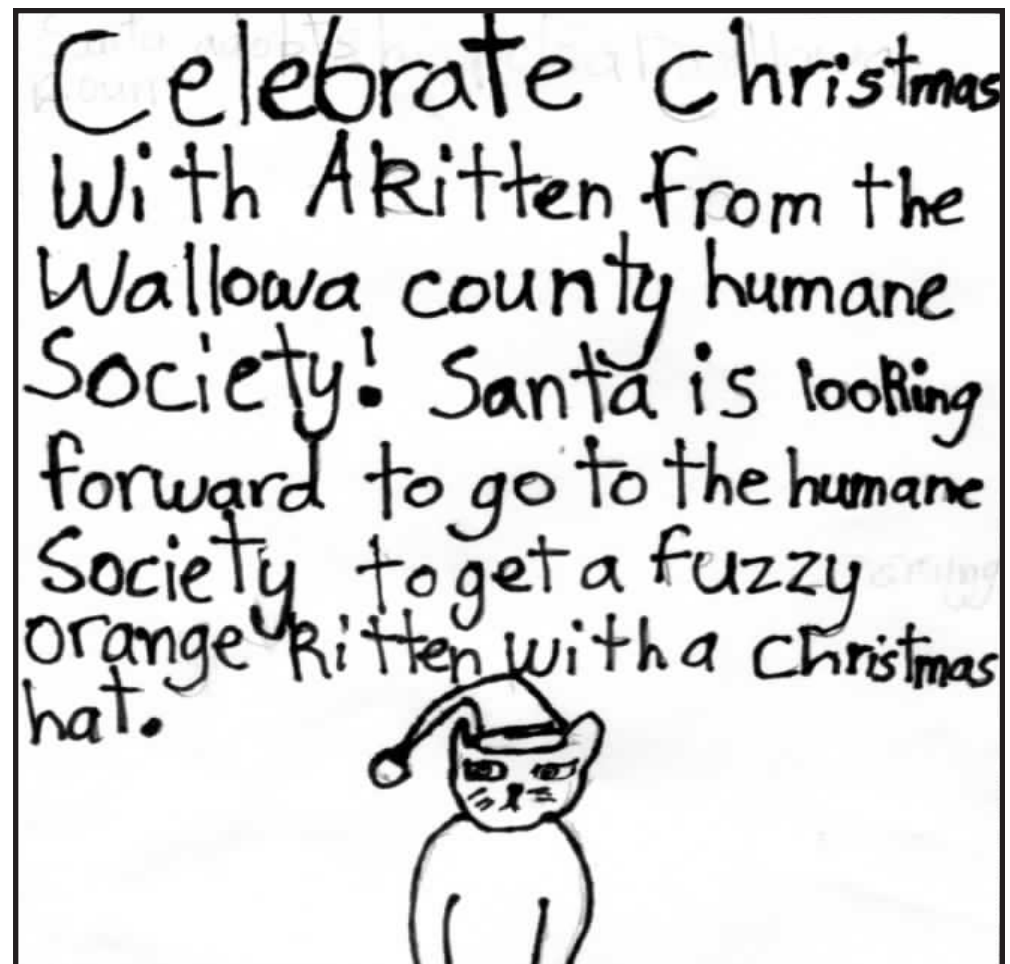 Celebrate Christmas
With A Kitten from the
Wallowa county humane
Society! Santa is looking
forward to go to the humane
Society to get a fuzzy
orange kitten with a Christmas
hat.